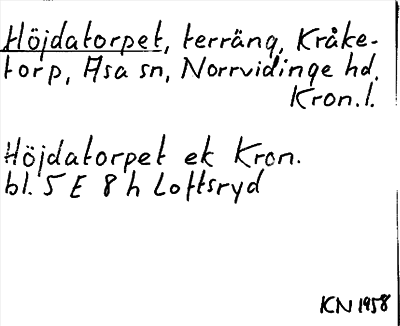 Höjdatorpet, terräng, Kråke-
torp, Asa sn, Norrvidinge hd,
Kron. l.
Höjdatorpet ek Kron.
bl. 5 E 8 h Loftsryd
KN 1958